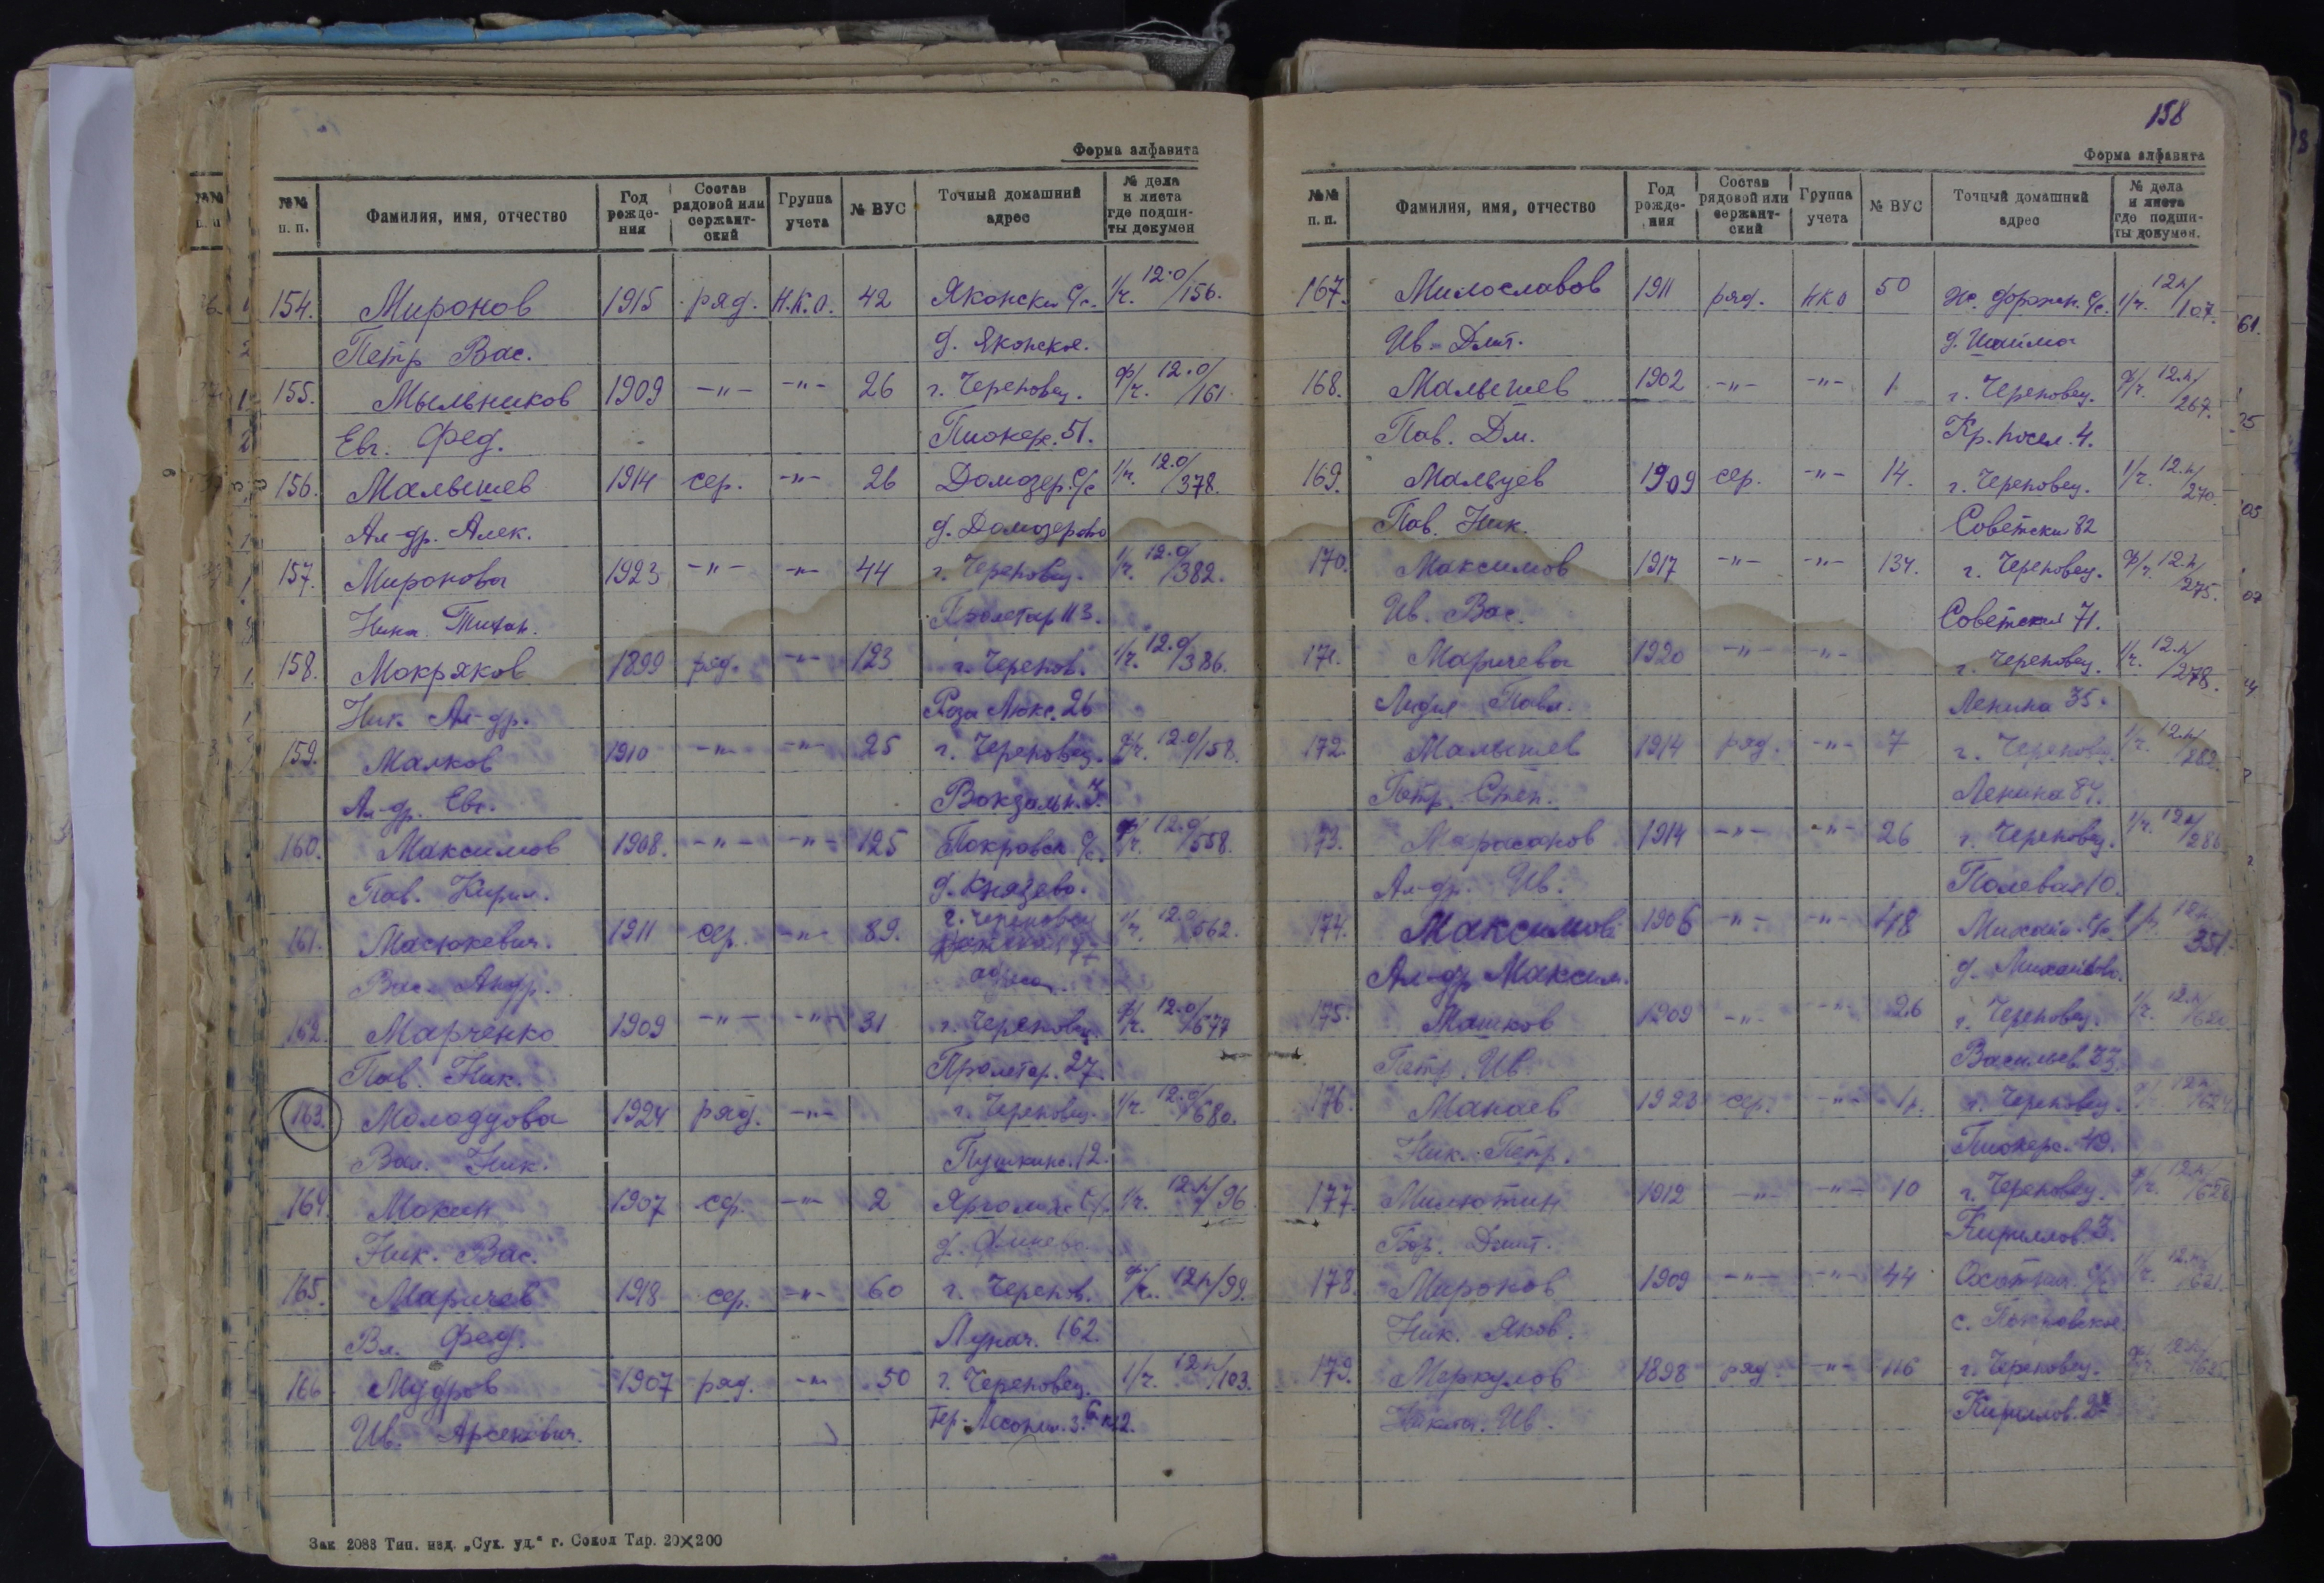 Форма алфавита
№№ п. п. Фамилия, имя, отчество Год рожде-ния Состав рядовой или сержант-ский Группа учета № ВУС Точный домашний адрес № дела и листа где подши-ты докумен
154. Миронов 1915 ряд. Н.К.О. 42 Яконски С/с. 1/ч. 12.0/156.
Петр Вас. д. Яконское.
155. Мыльников 1909 -"- -"- 26 г. Череповец. Ф/ч. 12.0/161.
Евг. Фед. Пионер. 51.
156. Малышев 1914 сер. -"- 26 Домозер. С/с 1/ч. 12.0/378.
Ал-др. Алек. д. Домозерово
157. Миронова 1923 -"- -"- 44 г. Череповец. 1/ч. 12.0/382.
Нина Тихон. Пролетар 113.
158. Мокряков 1899 ряд. -"- 123 г. Черепов. 1/ч. 12.0/386.
Ник. Ал-др. Роза Люкс. 26
159. Малков 1910 -"- -"- 25 г. Череповец. Ф/ч. 12.0/158.
Ал-др. Евг. Вокзальн. 7.
160. Максимов 1908. -"- -"- 125 Покровск С/с. Ф/ч. 12.0/558.
Пав. Кирил. д. Князево.
161. Масюкевич. 1911 сер. -"- 89. г. Череповец 1/ч. 12.0/562.
Вас. Андр.
162. Марченко 1909 -"- -"- 31 г. Череповец. Ф/ч. 12.0/677
Пав. Ник. Пролетар. 27.
163. Молодцова 1924 ряд. -"- г. Череповец. 1/ч. 12.0/680.
Вал. Ник. Пушкинс. 12.
164. Мокин 1907 сер. -"- 2 1/ч. 12п/96
Ник. Вас. д.
165. Маричев 1918 сер. -"- 60 г. Черепов. Ф/ч. 12п/99.
Вл. Фед. Лунач. 162.
166. Мудров 1907 ряд. -"- 50 г. Череповец. 1/ч. 12п/103.
Ив. Арсенович.
Зак 2088 Тип. изд. „Сух. уд.“ г. Сокол Тир. 20×200
158
Форма алфавита
№№ п. п. Фамилия, имя, отчество Год рожде-ния Состав рядовой или сержант-ский Группа учета № ВУС Точный домашний адрес № дела и листа где подши-ты докумен.
167. Милославов 1911 ряд. НКО 50 1/ч. 12п/107.
Ив. Дмит. д. Шайма
168. Малышев 1902 -"- -"- 1 г. Череповец. Ф/ч. 12.п/267.
Пав. Дм. Кр. посел. 4.
169. Мальцев 1909 сер. -"- 14. г. Череповец. 1/ч. 12.п/270.
Пав. Ник. Советский 82
170. Максимов 1917 -"- -"- 134. г. Череповец. Ф/ч. 12.п/275.
Ив. Вас. Советский 71.
171. Маричева 1920 -"- -"- г. Череповец. 1/ч. 12.п/278.
Лидия Павл. Ленина 35.
172. Малышев 1914 ряд. -"- 7 г. Череповец 1/ч. 12.п/282.
Петр. Степ. Ленина 84.
173. Марасанов 1914 -"- -"- 26 г. Череповец. 1/ч. 12п/286
Ал-др. Ив. Полевая 10.
174. Максимов 1906 -"- -"- 48 Михайл. С/с. 12п 351.
Ал-др Максим. д. Михайлово.
175. Машков 1909 -"- -"- 26 г. Череповец. 1/ч. 12.п/
Петр. Ив. Васильев. 33.
176. Манаев 1923 сер. -"- г. Череповец. 12п
Ник. Петр. Пионерс. 49.
177. Милютин 1912 -"- -"- 10 г. Череповец. Ф/ч. 12.п/
Бор. Дмит. Кириллов. 3.
178. Миронов 1909 -"- -"- 44 1/ч. 12.п/
Ник. Яков. с. Покровское
179. Меркулов 1898 ряд. -"- 116 г. Череповец. Ф/ч. 12п/
Никита. Ив. Кириллов.